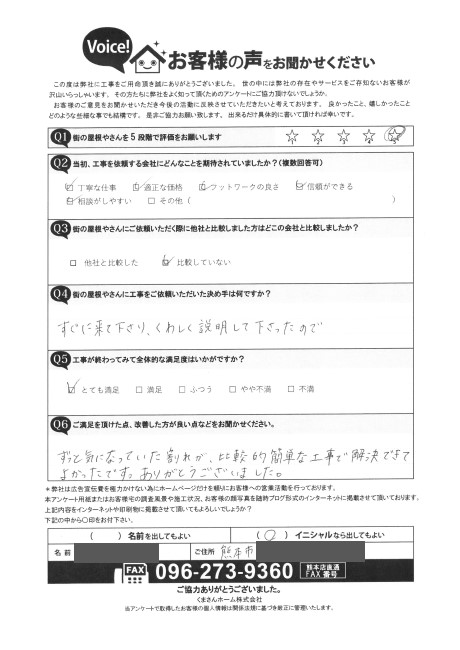 Voice!
お客様の声をお聞かせください
この度は弊社に工事をご用命頂き誠にありがとうございました。世の中には弊社の存在やサービスをご存知ないお客様が
沢山いらっしゃいます。その方たちに弊社をよく知って頂くためのアンケートにご協力頂けないでしょうか。
お客様のご意見をお聞かせいただき今後の活動に反映させていただきたいと考えております。良かったこと、嬉しかったこと
どのような些細な事でも結構です。是非ご協力お願い致します。出来るだけ具体的に書いて頂ければ幸いです。
Q1 街の屋根やさんを5段階で評価をお願いします ☆ ☆ ☆ ☆ ☆
Q2 当初、工事を依頼する会社にどんなことを期待されていましたか?(複数回答可)
☑ 丁寧な仕事 ☑ 適正な価格 ☑ フットワークの良さ ☑ 信頼ができる
☑ 相談がしやすい □ その他( )
Q3 街の屋根やさんにご依頼いただく際に他社と比較しました方はどこの会社と比較しましたか?
□ 他社と比較した ☑ 比較していない
Q4 街の屋根やさんに工事をご依頼いただいた決め手は何ですか?
すぐに来て下さり、くわしく説明して下さったので
Q5 工事が終わってみて全体的な満足度はいかがですか?
☑ とても満足 □ 満足 □ ふつう □ やや不満 □ 不満
Q6 ご満足を頂けた点、改善した方が良い点などをお聞かせください。
ずっと気になっていた割れが、比較的簡単な工事で解決できて
よかったです。ありがとうございました。
*弊社は広告宣伝費を極力かけない為にホームページだけを頼りにお客様への営業活動を行っております。
本アンケート用紙またはお客様宅の調査風景や施工状況、お客様の顔写真を随時ブログ形式のインターネットに掲載させて頂いております。
上記内容をインターネットや印刷物に掲載させて頂いてもよろしいでしょうか?
下記の中から〇印をお付下さい。
( ) 名前を出してもよい (〇) イニシャルなら出してもよい
名前 ご住所 熊本市
FAX 096-273-9360 熊本店直通
FAX番号
ご協力ありがとうございました。
くまさんホーム株式会社
当アンケートで取得したお客様の個人情報は関係法規に基づき厳正に管理いたします。